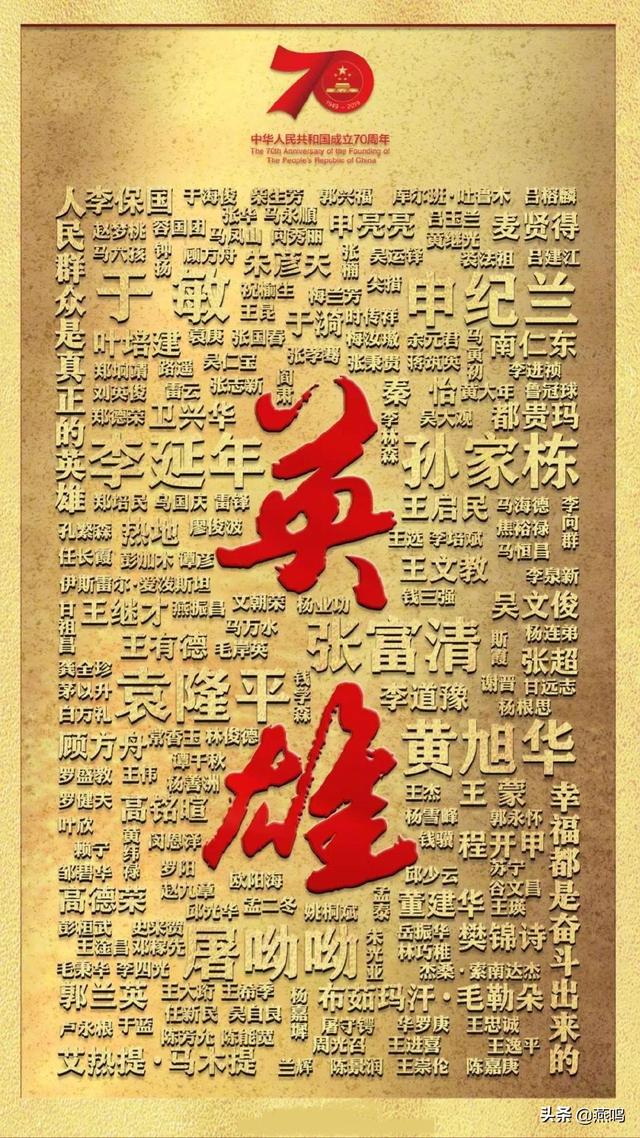 70
1949-2019
中华人民共和国成立70周年
The 70th Anniversary of the Founding of
The People's Republic of China
人民群众是真正的英雄
李保国 于海俊 柴生芳 郭兴福 库尔班·吐鲁木 吕榕麟
赵梦桃 容国团 张华 马永顺 申亮亮 吕玉兰 麦贤得
马六孩 钟扬 顾方舟 马凤山 向秀丽 朱彦夫 张楠 吴运铎 黄继光 裴法祖 吕建江
于敏 祝榆生 王昆 梅兰芳 于漪 时传祥 申纪兰
叶培建 袁庚 张国春 张学骞 梅汝璈 余元君 马寅初 南仁东
郑垧靖 路遥 吴仁宝 张秉贵 蒋筑英 李进祯
刘英俊 雷云 张志新 阎肃 秦怡 黄大年 鲁冠球
郑德荣 卫兴华 李林森 吴大观 都贵玛
李延年 孙家栋
郑培民 马国庆 雷锋 王启民 马海德 李向群
孔繁森 热地 廖俊波 王选 李培斌 焦裕禄
任长霞 彭加木 谭彦 王文教 马恒昌
伊斯雷尔·爱泼斯坦 李泉新
甘祖昌 王继才 燕振昌 文朝荣 杨业功 钱三强 吴文俊
王有德 马万水 毛岸英 张富清 斯霞 杨连弟 张超
龚全珍 袁隆平 钱学森 李道豫 谢晋 甘远志
茅以升 杨根思
白方礼
顾方舟 常香玉 林俊德 黄旭华
罗盛教 王伟 谭千秋
杨善洲 王杰 王蒙
罗健夫 高铭暄 杨雪峰 郭永怀
叶欣 黄纬禄 闵恩泽 钱骥 程开甲
赖宁 苏宁
邹碧华 罗阳 邱少云 谷文昌
高德荣 赵九章 欧阳海 孟泰 董建华 王瑛
彭桓武 史来贺 邱光华 孟二冬 姚桐斌 岳振华 樊锦诗
王淦昌 邓稼先 屠呦呦 朱光亚 林巧稚
毛秉华 李四光 杰桑·索南达杰
郭兰英 王大珩 王希季 杨嘉墀 布茹玛汗·毛勒朵
卢永根 于蓝 任新民 吴自良 屠守锷 华罗庚 王忠诚
陈芳允 陈能宽 周光召 王进喜 王逸平
艾热提·马木提 兰辉 陈景润 王崇伦 陈嘉庚
英雄
幸福都是奋斗出来的
头条 @燕鸣